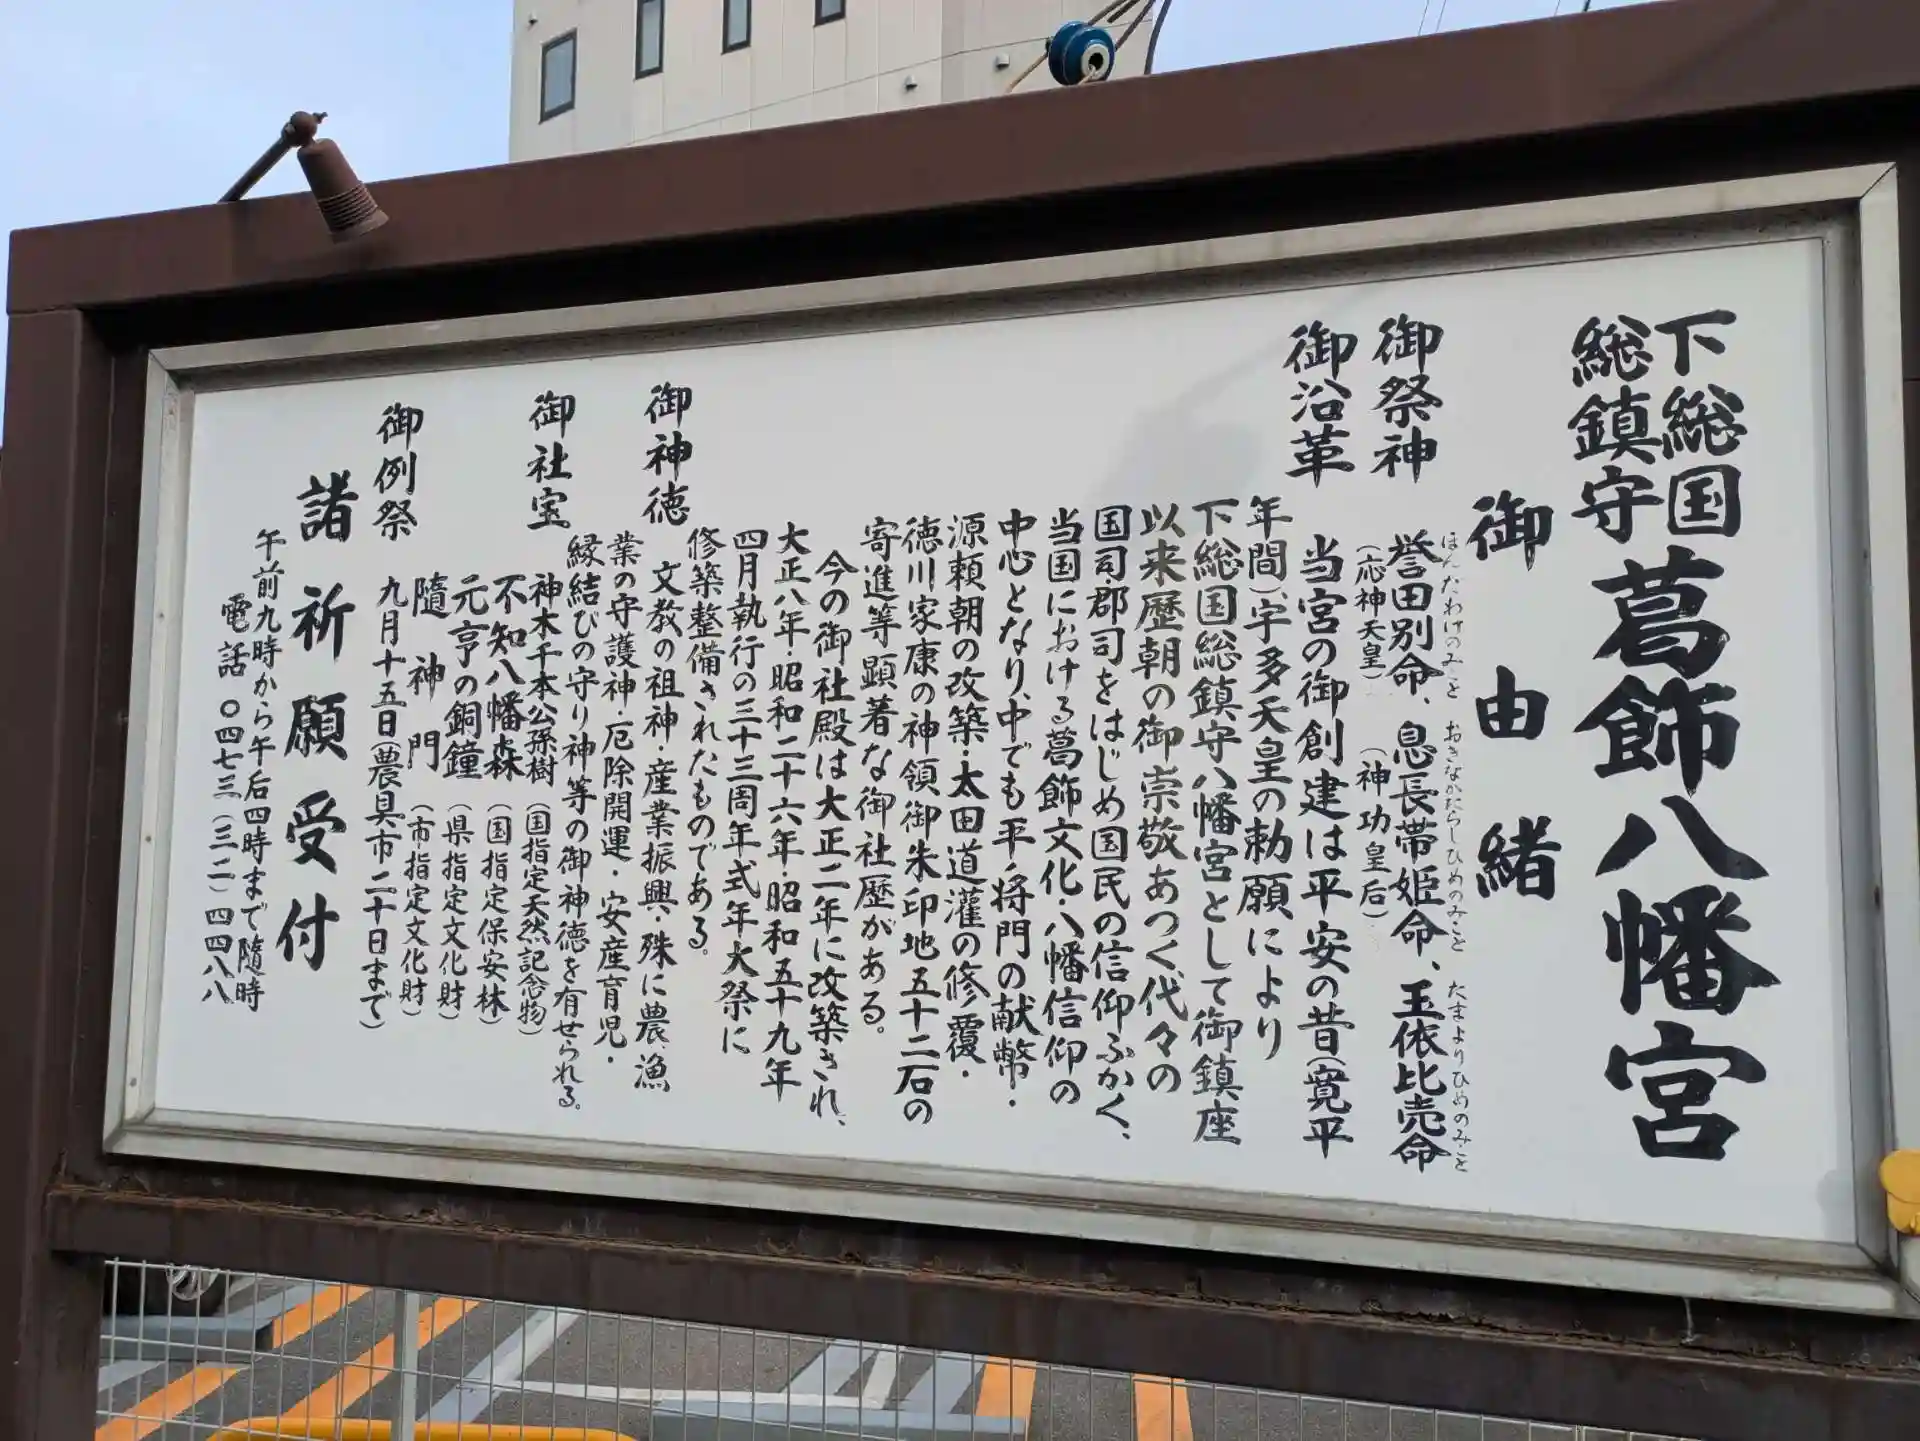 下総国
総鎮守
葛飾八幡宮
御由緒
御祭神
ほんだわけのみこと おきながたらしひめのみこと たまよりひめのみこと
誉田別命、息長帯姫命、玉依比売命
（応神天皇）（神功皇后）
御沿革
当宮の御創建は平安の昔（寛平
年間）、宇多天皇の勅願により
下総国総鎮守八幡宮として御鎮座
以来歴朝の御崇敬あつく代々の
国司・郡司をはじめ国民の信仰ふかく、
当国における葛飾文化・八幡信仰の
中心となり、中でも平ノ将門の献幣・
源頼朝の改築・太田道灌の修覆・
徳川家康の神領御朱印地五十二石の
寄進等顕著な御社歴がある。
今の御社殿は大正二年に改築され、
大正八年・昭和二十六年・昭和五十九年
四月執行の三十三周年式年大祭に
修築整備されたものである。
御神徳
文教の祖神・産業振興、殊に農、漁
業の守護神・厄除開運・安産育児・
縁結びの守り神等の御神徳を有せられる。
御社宝
神木千本公孫樹（国指定天然記念物）
不知八幡森（国指定保安林）
元亨の銅鐘（県指定文化財）
隨神門（市指定文化財）
御例祭
九月十五日（農具市二十日まで）
諸祈願受付
午前九時から午后四時まで隨時
電話 〇四七三（三二）四四八八